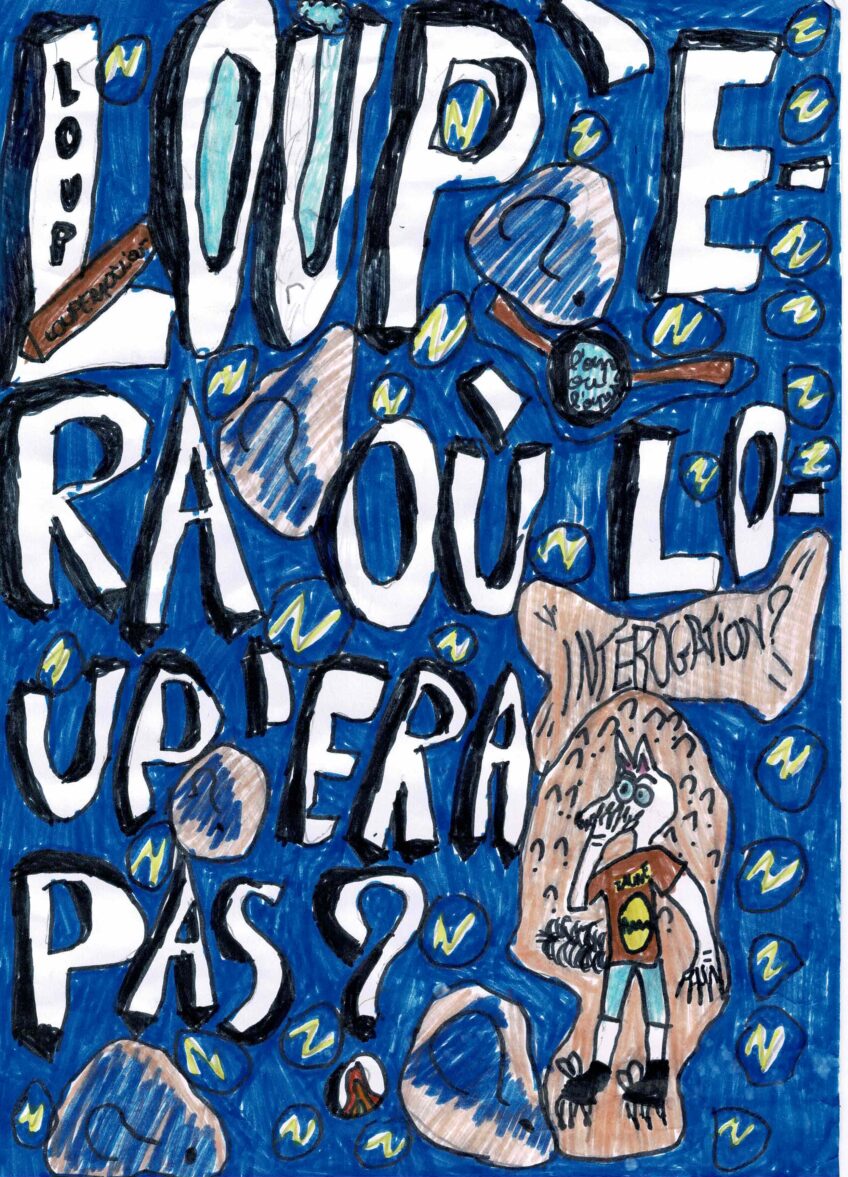 LOUP'E-
LOUP
RA OÙ LO-
"INTEROGATION?"
UP'ERA
PAS?